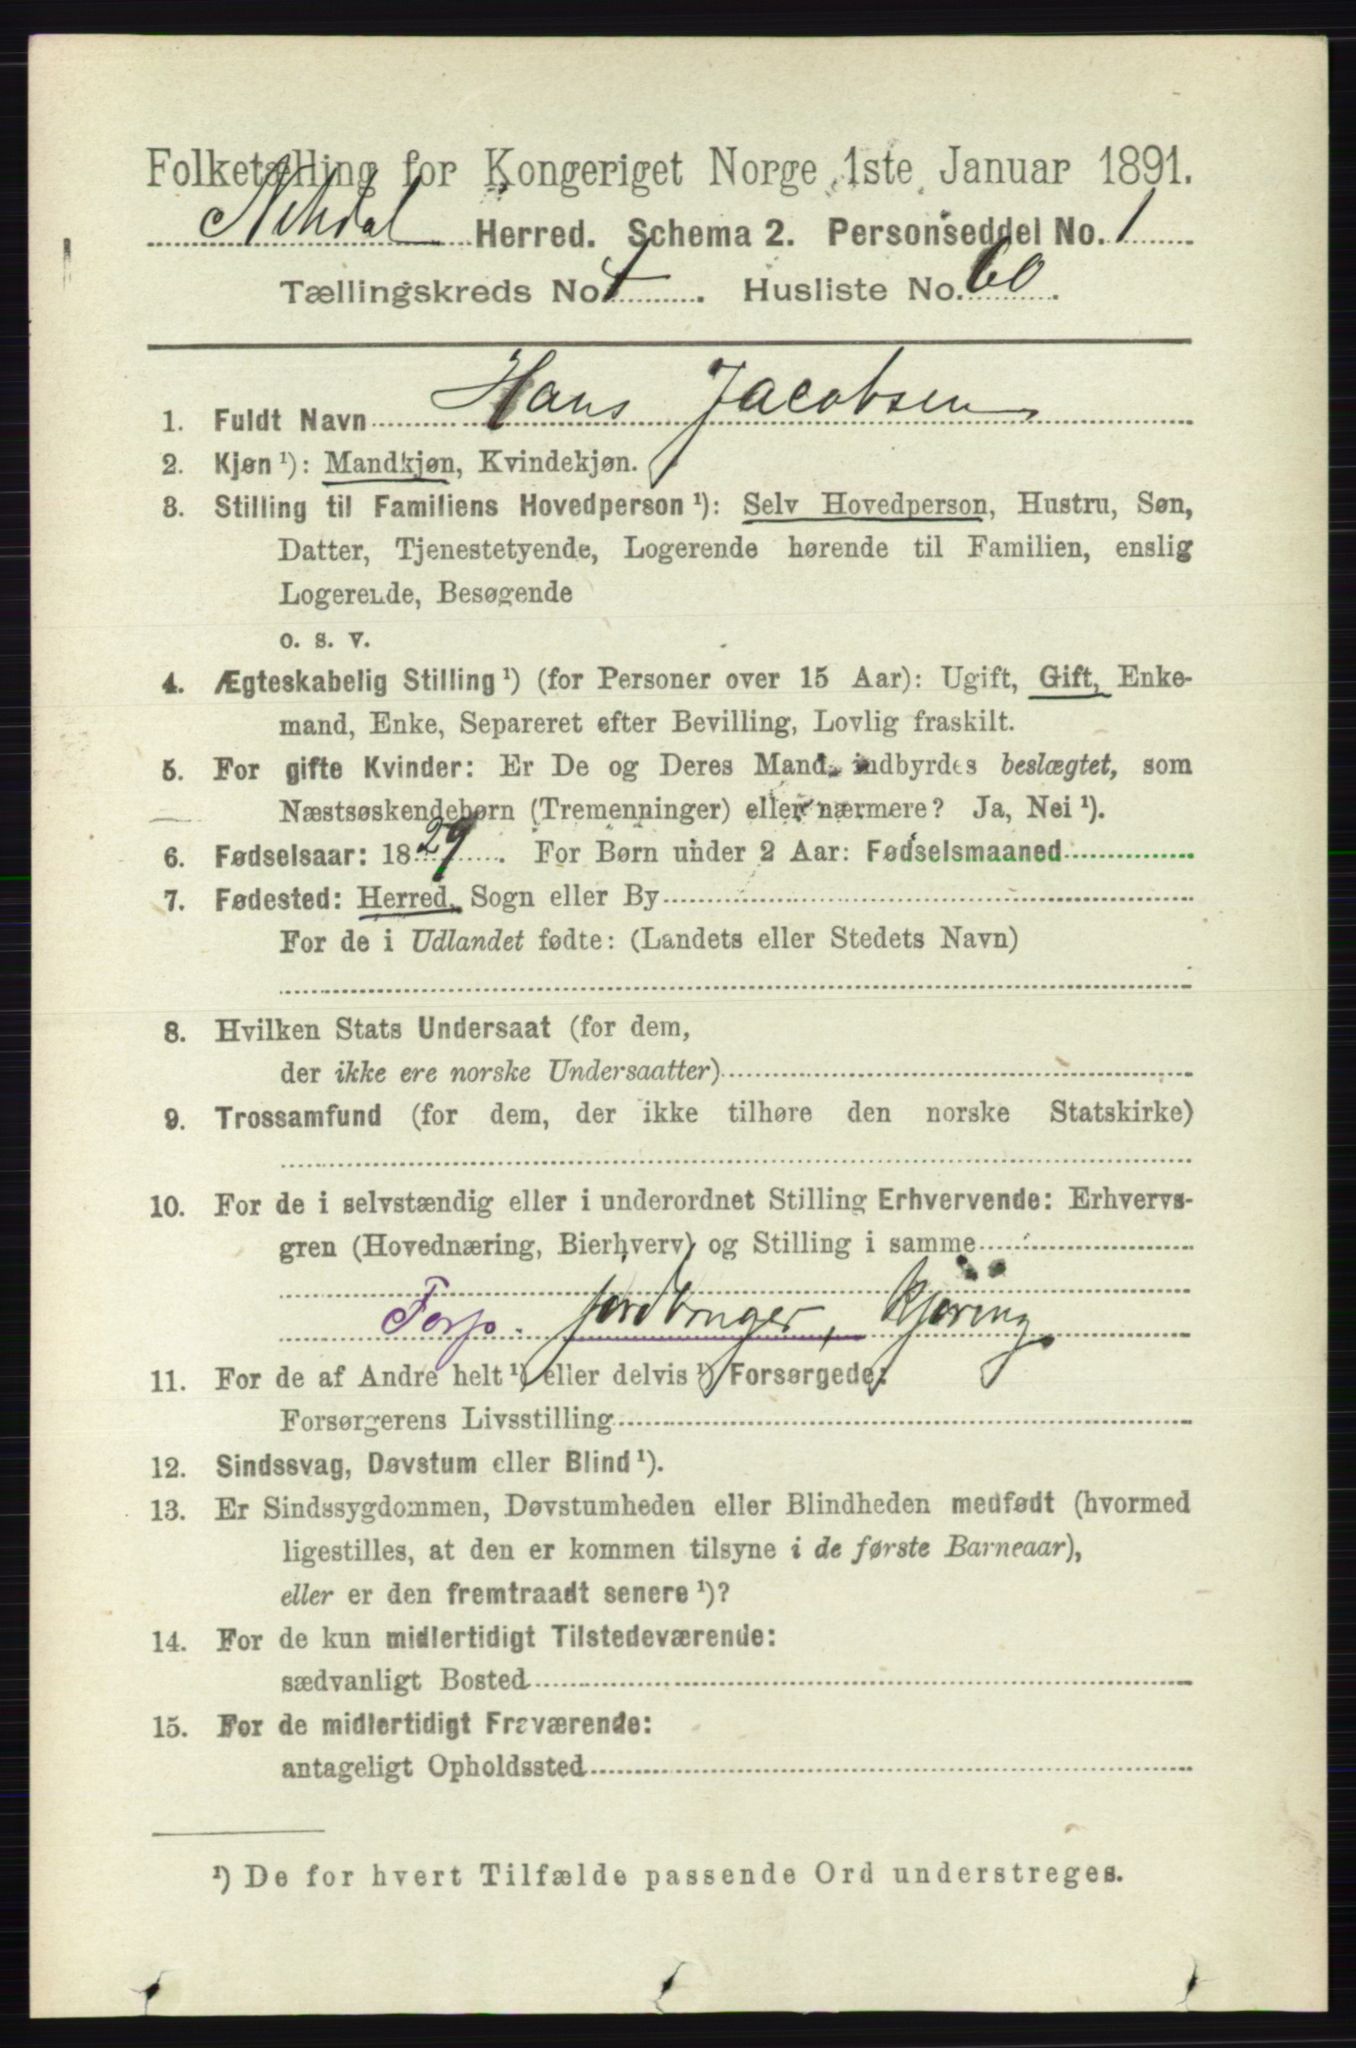 Folketælling for Kongeriget Norge 1ste Januar 1891.
Herred. Schema 2. Personseddel No. 1
Tællingskreds No. Husliste No. 60.
1. Fuldt Navn Hans Jacobsen
2. Kjøn ¹): Mandkjøn, Kvindekjøn.
3. Stilling til Familiens Hovedperson ¹): Selv Hovedperson, Hustru, Søn,
Datter, Tjenestetyende, Logerende hørende til Familien, enslig
Logerende, Besøgende
o. s. v.
4. Ægteskabelig Stilling ¹) (for Personer over 15 Aar): Ugift, Gift, Enke-
mand, Enke, Separeret efter Bevilling, Lovlig fraskilt.
5. For gifte Kvinder: Er De og Deres Mand indbyrdes beslægtet, som
Næstsøskendebørn (Tremenninger) eller nærmere? Ja, Nei ¹).
6. Fødselsaar: 1829. For Børn under 2 Aar: Fødselsmaaned
7. Fødested: Herred, Sogn eller By
For de i Udlandet fødte: (Landets eller Stedets Navn)
8. Hvilken Stats Undersaat (for dem,
der ikke ere norske Undersaatter)
9. Trossamfund (for dem, der ikke tilhøre den norske Statskirke)
10. For de i selvstændig eller i underordnet Stilling Erhvervende: Erhvervs-
gren (Hovednæring, Bierhverv) og Stilling i samme
Forp. jordbruger, Kjöring
11. For de af Andre helt ¹) eller delvis ¹) Forsørgede:
Forsørgerens Livsstilling
12. Sindssvag, Døvstum eller Blind ¹).
13. Er Sindssygdommen, Døvstumheden eller Blindheden medfødt (hvormed
ligestilles, at den er kommen tilsyne i de første Barneaar),
eller er den fremtraadt senere ¹)?
14. For de kun midlertidigt Tilstedeværende:
sædvanligt Bosted
15. For de midlertidigt Fraværende:
antageligt Opholdssted
¹) De for hvert Tilfælde passende Ord understreges.